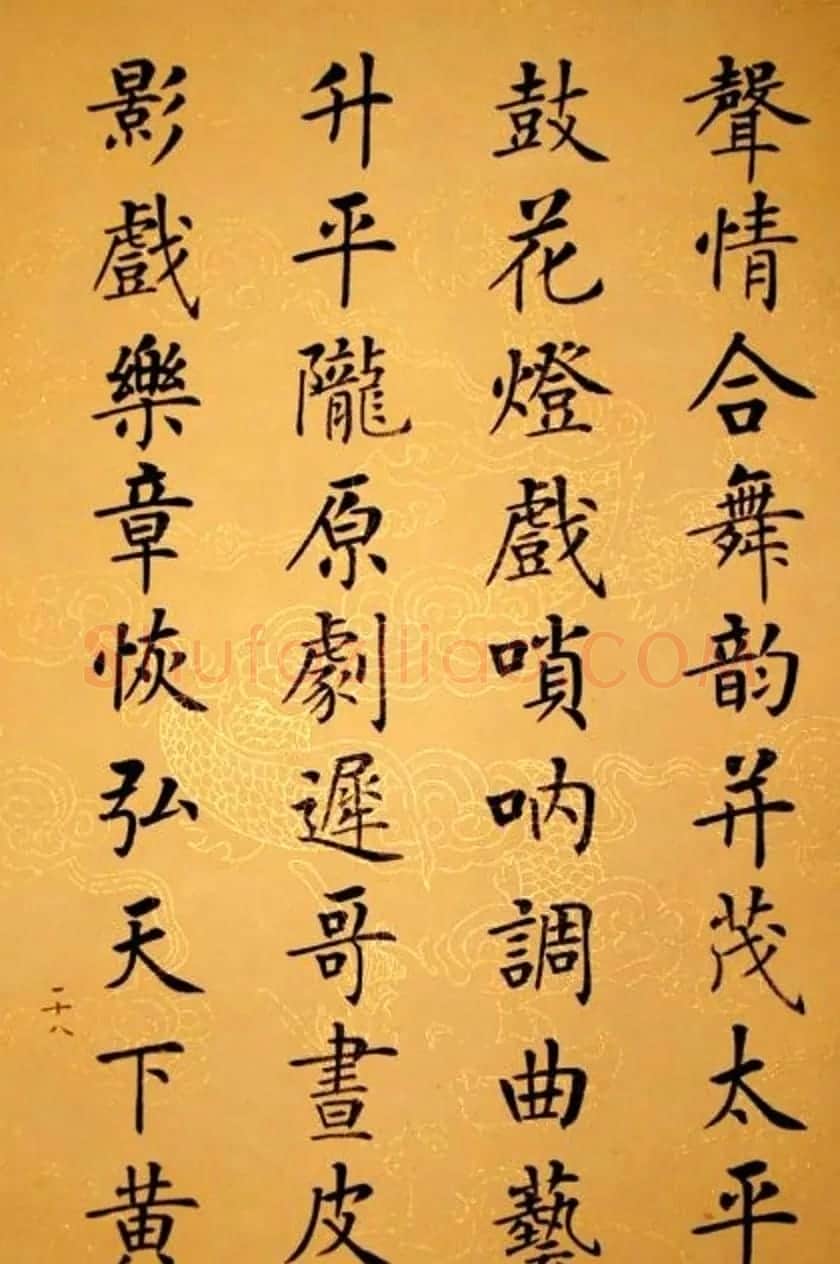 聲情合舞韵并茂太平
鼓花燈戲嗩吶調曲藝
升平隴原劇遲哥晝皮
影戲樂章恢弘天下黄
二十八
Shufa
.COM